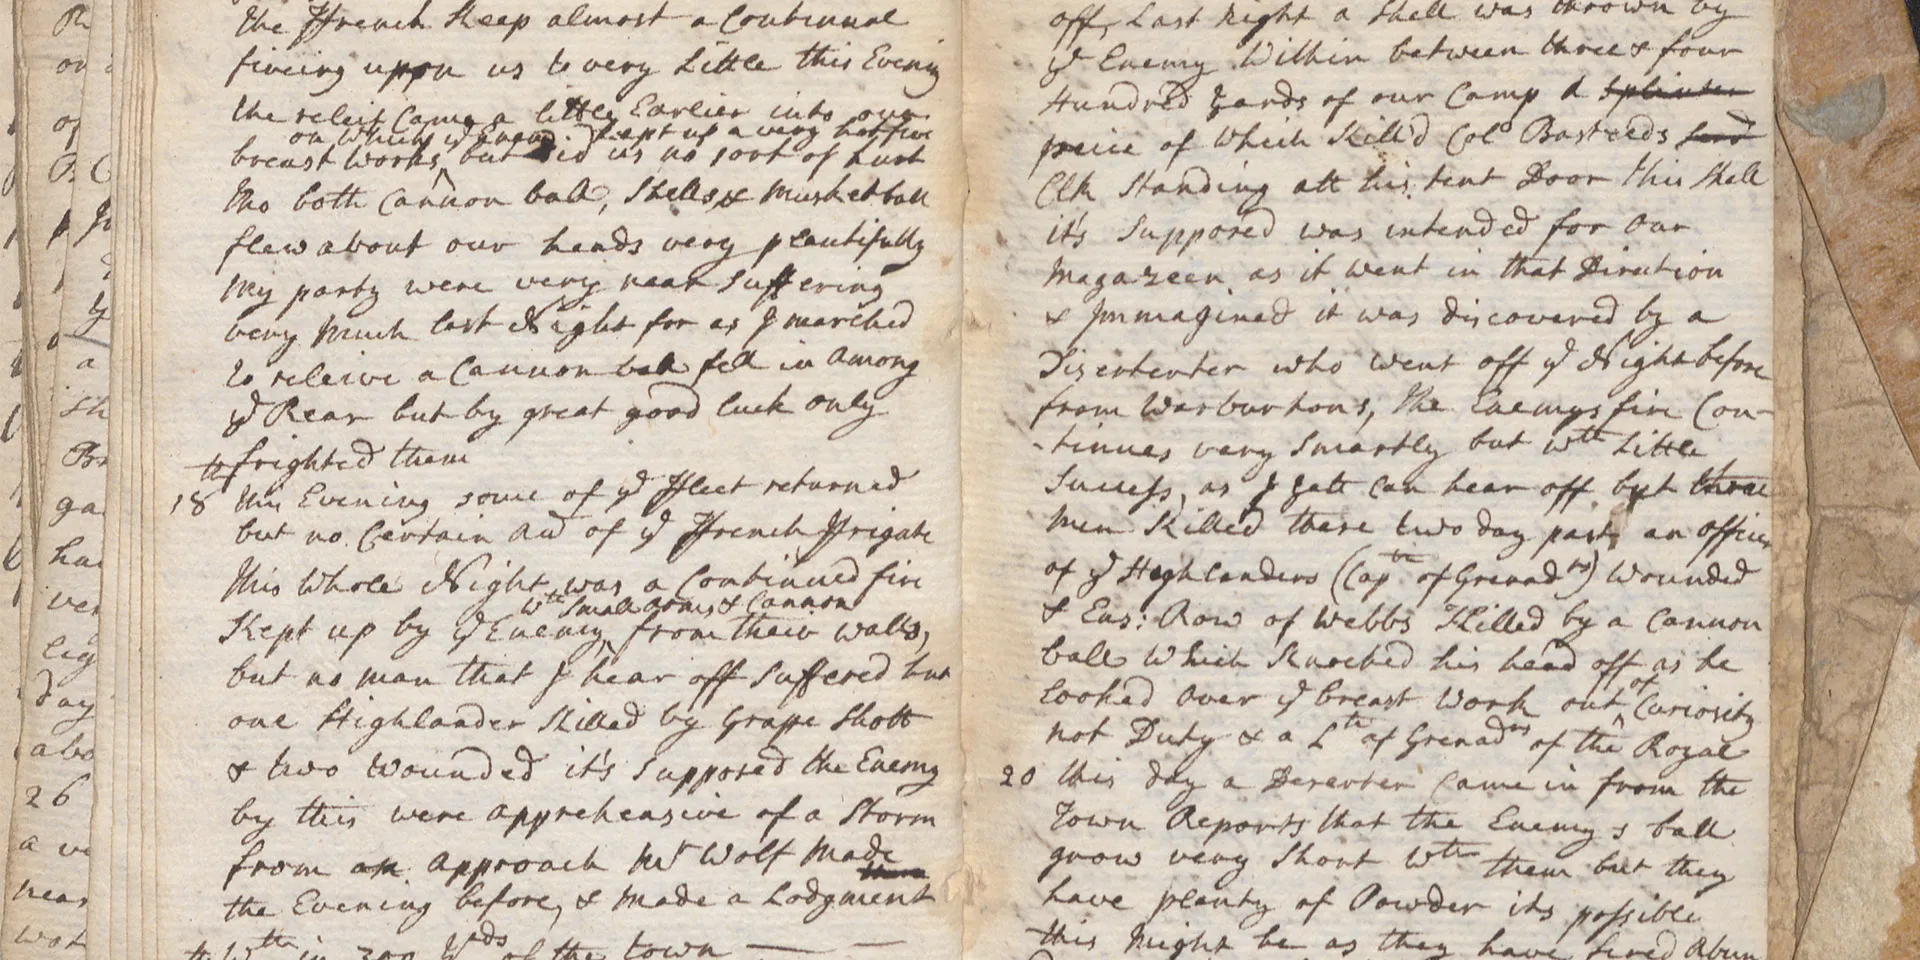 the Ffrench Keep almost a Continual
fireing upon us to very Little this Evenig
the releif Came a little Earlier into our
on which ye Enemy kept up a very hot fire
breast works, but did us no sort of hurt
tho both Cannon ball, Shells & Musket ball
flew about our heads very plentifully
My party were very near Suffering
very Much last Night for as I marched
to releive a Cannon ball fell in Among
ye Rear but by great good luck only
frighted them
18 this Evening some of ye Ffleet returned
but no Certain Acct of ye Ffrench Ffrigate
This Whole Night was a Continued fire
wth Small arms & Cannon
Kept up by ye Enemy from their walls,
but no man that I hear off Suffered but
one Highlander Killed by Grape Shott
& two wounded it's Supposed the Enemy
by this were apprehensive of a Storm
from an approach Mr Wolf Made
the Evening before, & made a Lodgment
Wth in 300 Yds of the town
off, Last Night a Shell was thrown by
ye Enemy Within between three & four
Hundred Yards of our Camp A Splinter
peice of which Kill'd Colo Basteeds
Clk Standing att his tent Door this Shell
it's Supposed was intended for our
Magazeen as it went in that Dirution
& Immagined it was discovered by a
Diserterter who went off ye Night before
from Warburtons, the Enemys fire Con-
tinues very Smartly but wth Little
Success, as I Yett can hear off but three
Men Killed these two day past, an officer
of ye Highlanders (Captn of Grenadrs) Wounded
& Ens: Row of Webbs Killed by a Cannon
ball Which Knocked his head off as he
Looked over ye breast Work out of Curiosity
not Duty & a Lt of Grenadrs of the Royal
20 this day a Deserter Came in from the
Town Reports that the Enemys ball
grow very Short Wth them but they
have plenty of Powder its possible
this Might be as they have fired Abun